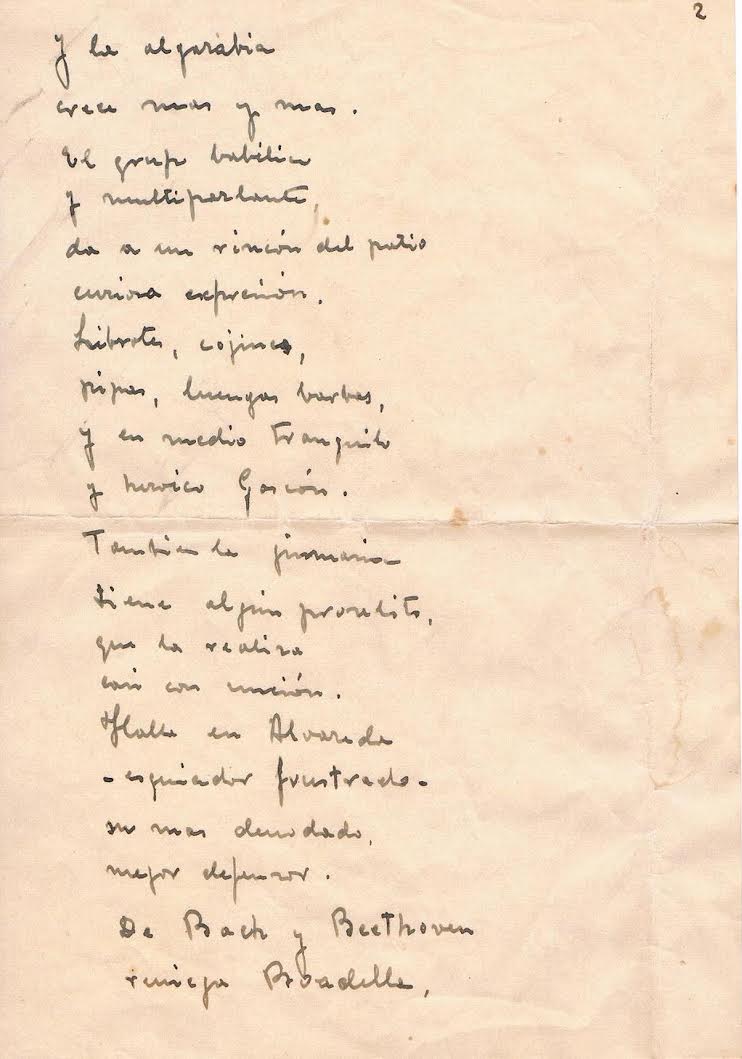 2
Y la algarabia
crece mas y mas.
El grupo babélico
y multiparlante,
da a un rincón del patio
curiosa expresión.
Librotes, cojines,
pipas, luengas barbas,
y en medio tranquilo
y heroico Gascón.
Tambien la jimnasia
tiene algún proselito,
que la realiza
casi con unción.
Halla en Alvareda
- esquiador frustrado -
su mas denodado,
mejor defensor.
De Bach y Beethoven
reniega Boadella,